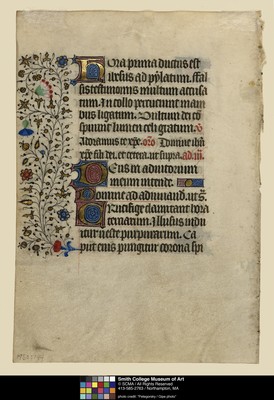 Hora prima ductus est
iesus ad pylatum. fal
sis testimoniis multum accusa
tum. In collo percuciunt mani
bus ligatum. Vultum dei co
spuunt lumen celi gratum. V
Adoramus te xpe. oro Domine ihu
xpe fili dei. et cetera. ut supra. ad iii.
Deus in adiutorium
meum intende.
Domine ad adiuuand. ut s.
Crucifige clamitant hora
terciarum. Illusus indu
itur ueste purpurarum. Ca
put eius pungitur corona spi
Smith College Museum of Art
© SCMA / All Rights Reserved
413-585-2763 / Northampton, MA
photo credit: "Petegorsky / Gipe photo"